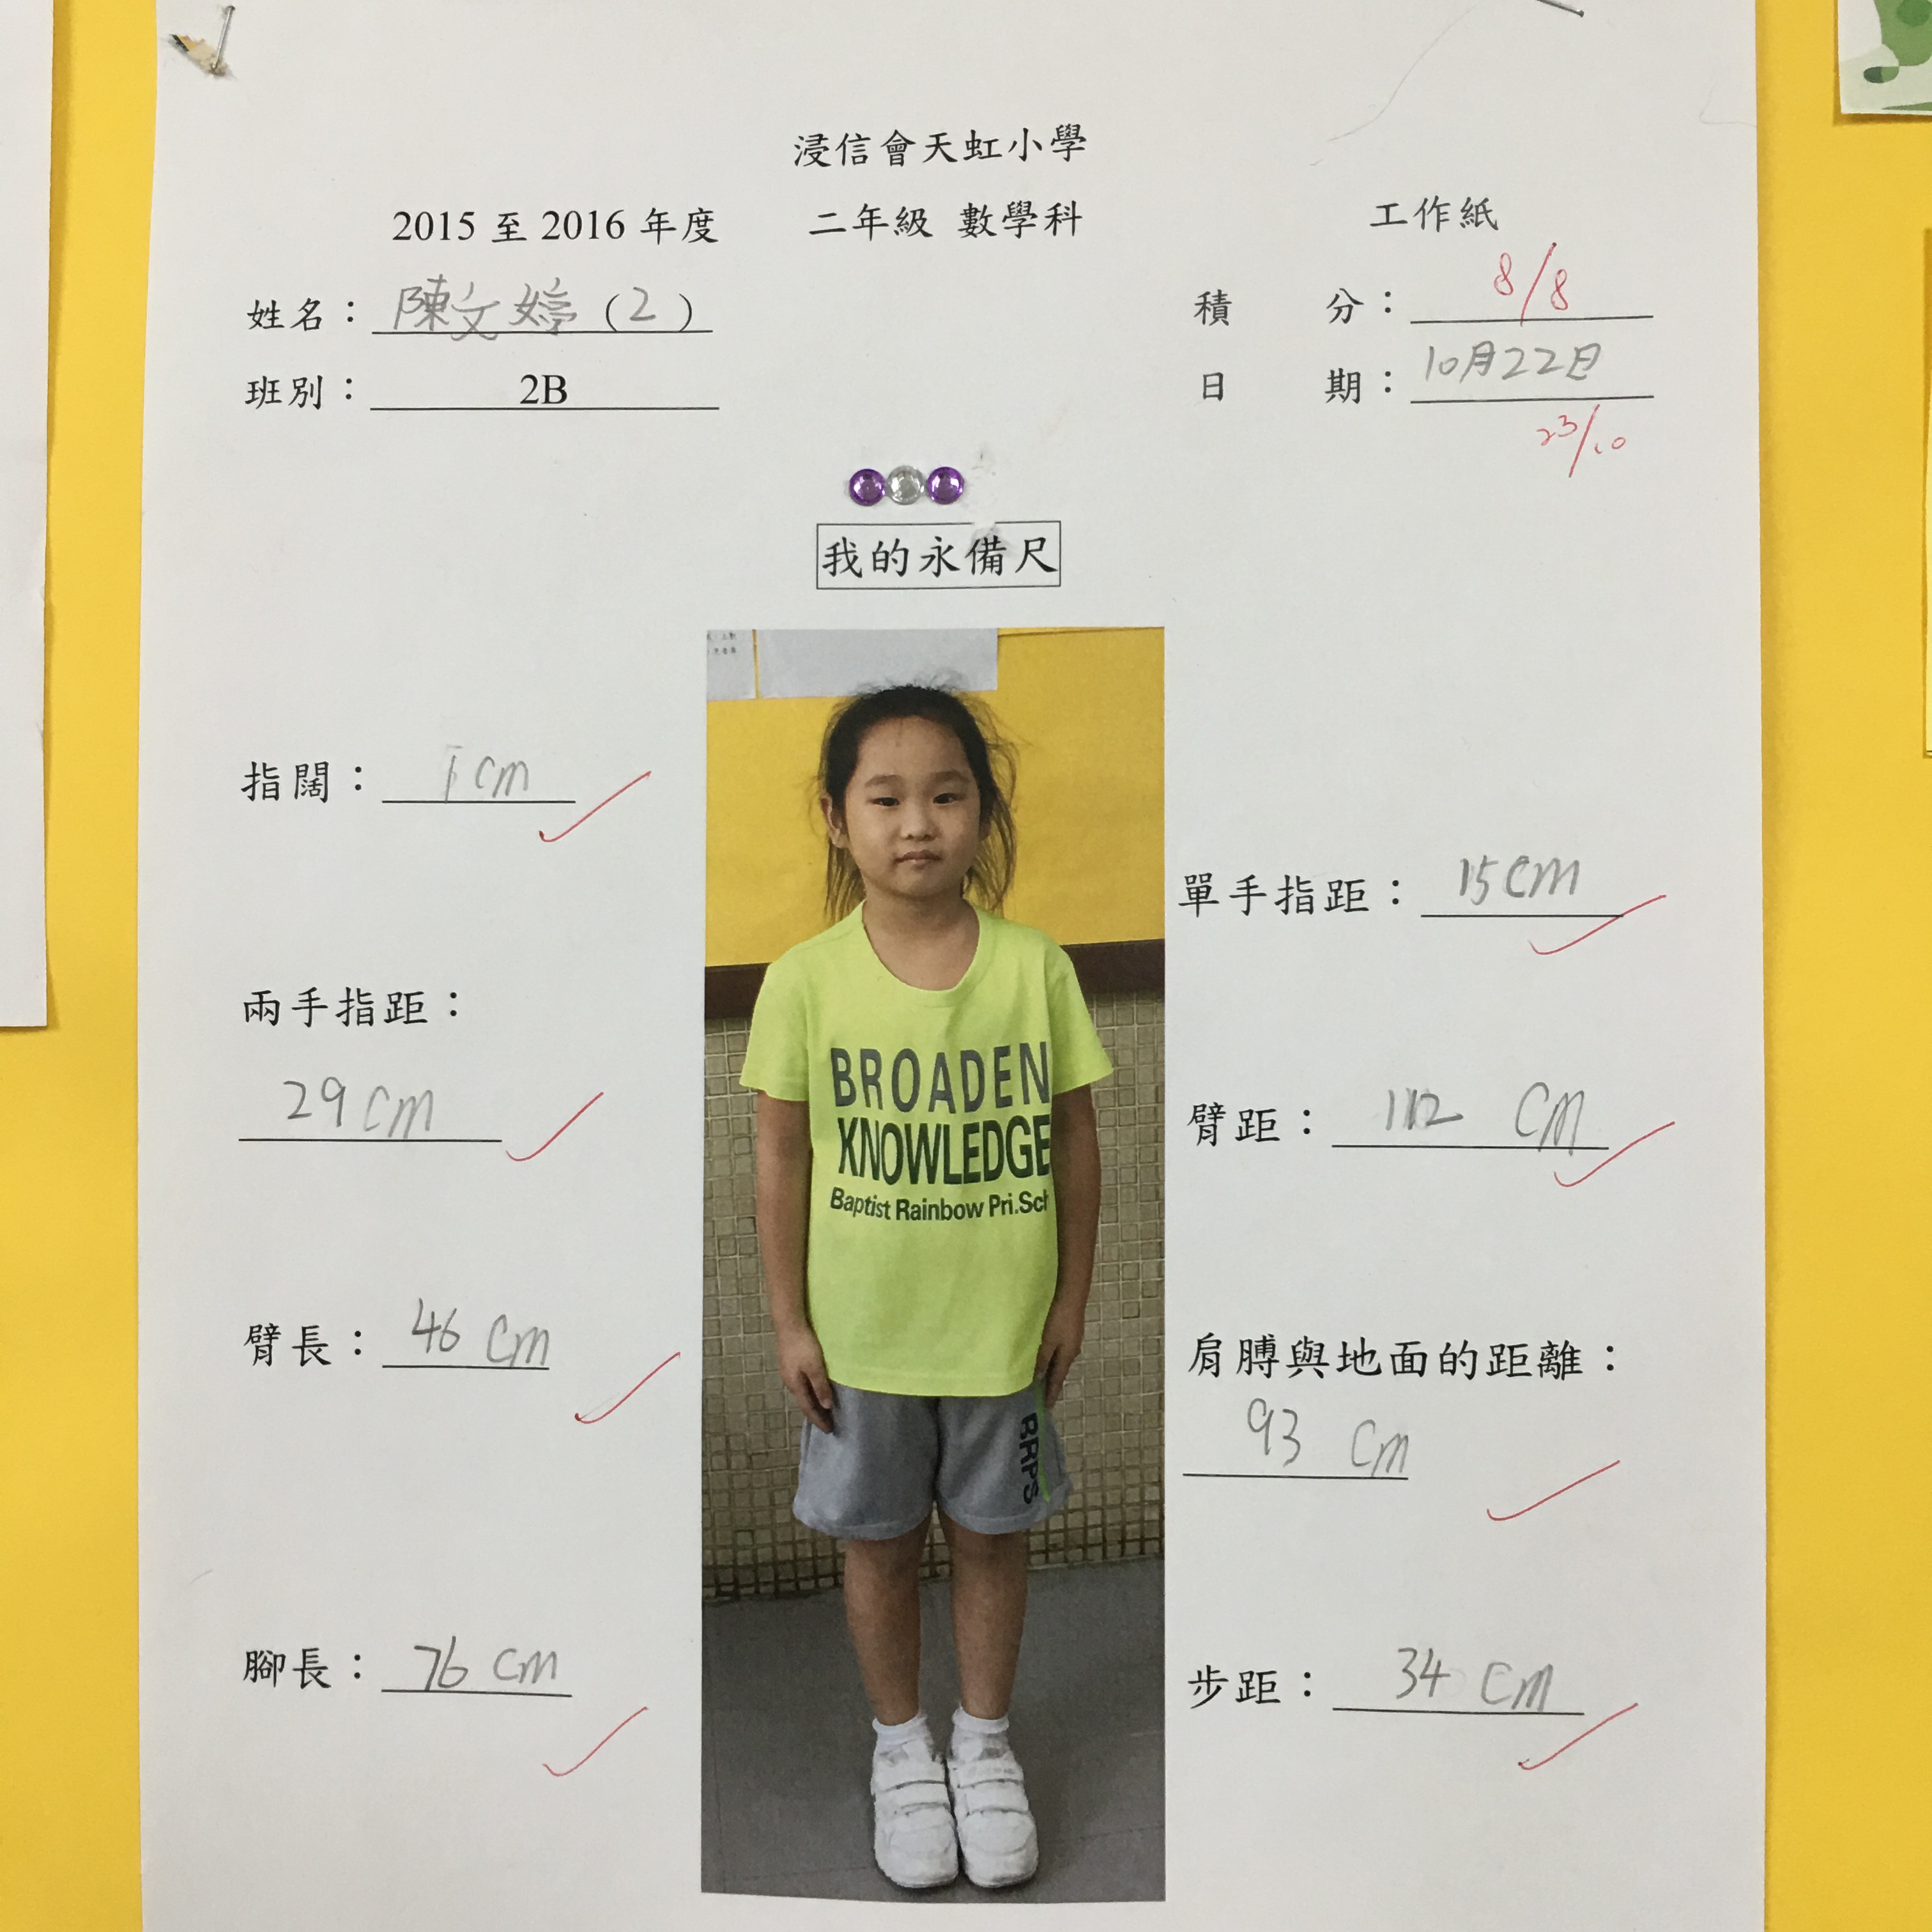 浸信會天虹小學
2015 至 2016 年度 二年級 數學科 工作紙
姓名： 陳文婷 (2) 積 分： 8/8
班別： 2B 日 期： 10月22日
23/10
我的永備尺
指闊： 1 cm
單手指距： 15 cm
兩手指距：
29 cm
臂距： 112 cm
臂長： 46 cm
肩膊與地面的距離：
93 cm
腳長： 76 cm
步距： 34 cm
BROADEN
KNOWLEDGE
Baptist Rainbow Pri.Sch
BRPS